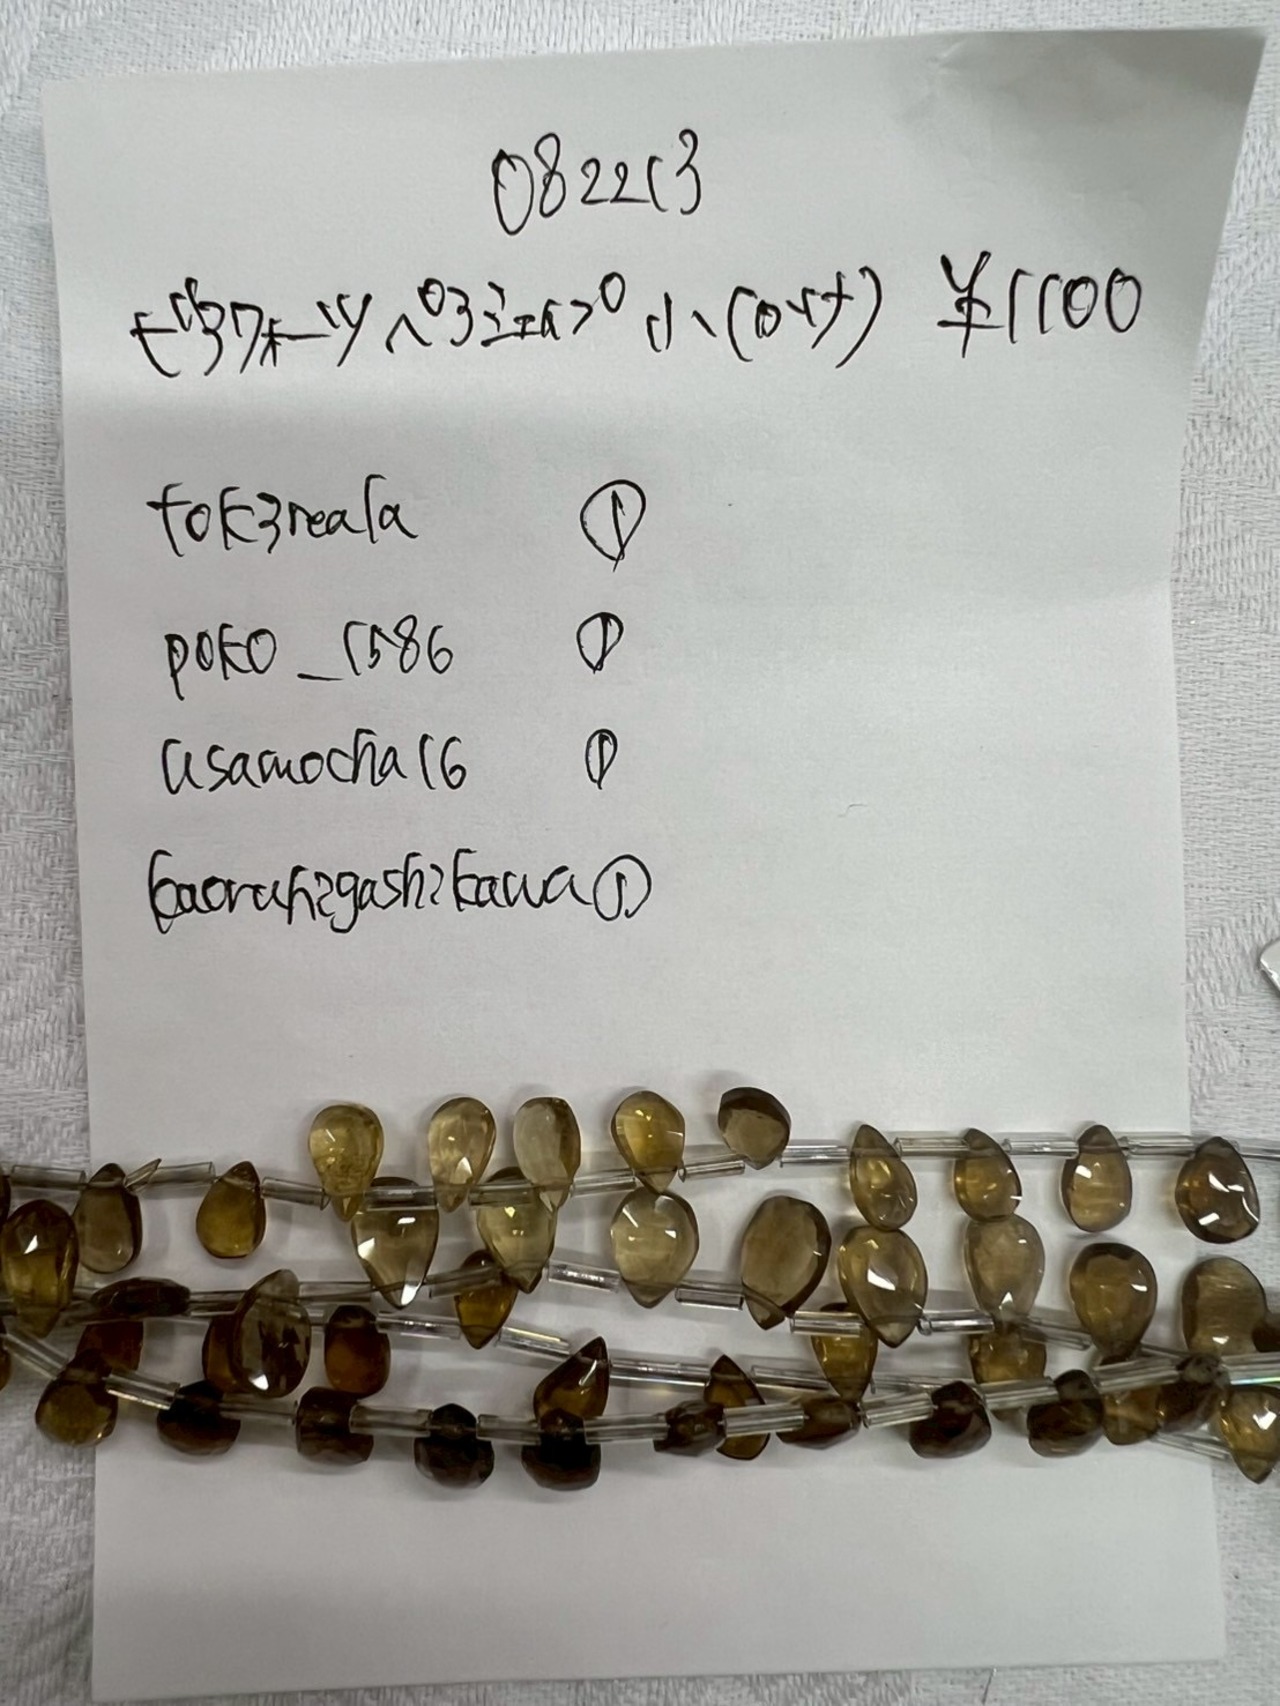 082213
ビアクォーツ ペアシェイプ 小 ¥1100
tok3reala ①
poko_1586 ①
usamocha16 ①
kaoruhigashikawa ①